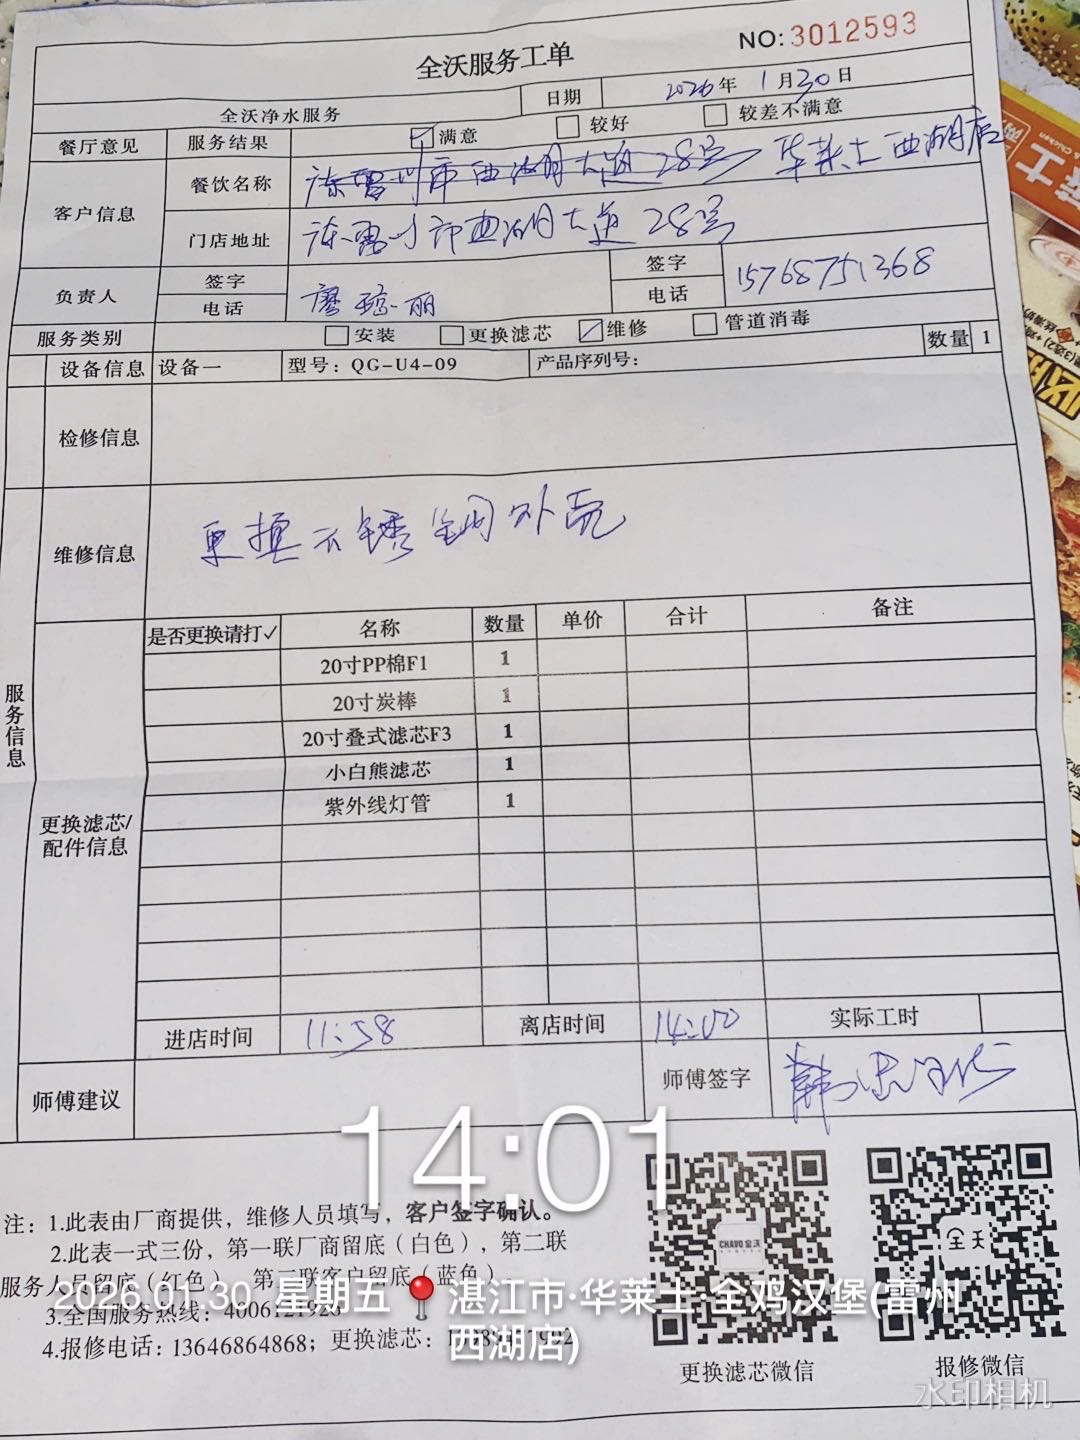 NO: 3012593
全沃服务工单
全沃净水服务 日期 2026年1月30日
餐厅意见 服务结果 ☑满意 □较好 □较差不满意
客户信息 餐饮名称 市西湖大道28号 华莱士西湖店
门店地址 市西湖大道28号
负责人 签字 电话 廖琼丽 签字 电话 15768751368
服务类别 □安装 □更换滤芯 ☑维修 □管道消毒
设备信息 设备一 型号：QG-U4-09 产品序列号： 数量 1
检修信息
维修信息 更换不锈钢外壳
服务信息
更换滤芯/配件信息
是否更换请打✓ 名称 数量 单价 合计 备注
20寸PP棉F1 1
20寸炭棒 1
20寸叠式滤芯F3 1
小白熊滤芯 1
紫外线灯管 1
进店时间 11:58 离店时间 14:00 实际工时
师傅建议 师傅签字 韩
14:01
注：1.此表由厂商提供，维修人员填写，客户签字确认。
2.此表一式三份，第一联厂商留底（白色），第二联
服务人员留底（红色），第三联客户留底（蓝色）。
3.全国服务热线：
4.报修电话：13646864868；更换滤芯：
2026.01.30 星期五 湛江市·华莱士·全鸡汉堡(雷州
西湖店)
CHAVO全沃
全沃
更换滤芯微信 报修微信
水印相机